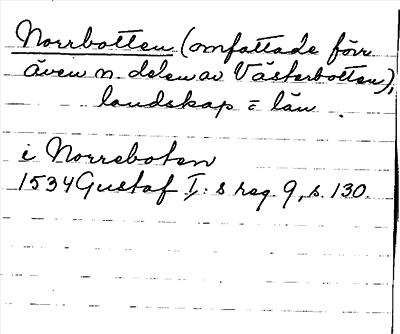 Norrbotten (omfattade förr
även n. delen av Västerbotten),
landskap = län.
i Norreboten
1534 Gustaf I:s reg. 9, s. 130.